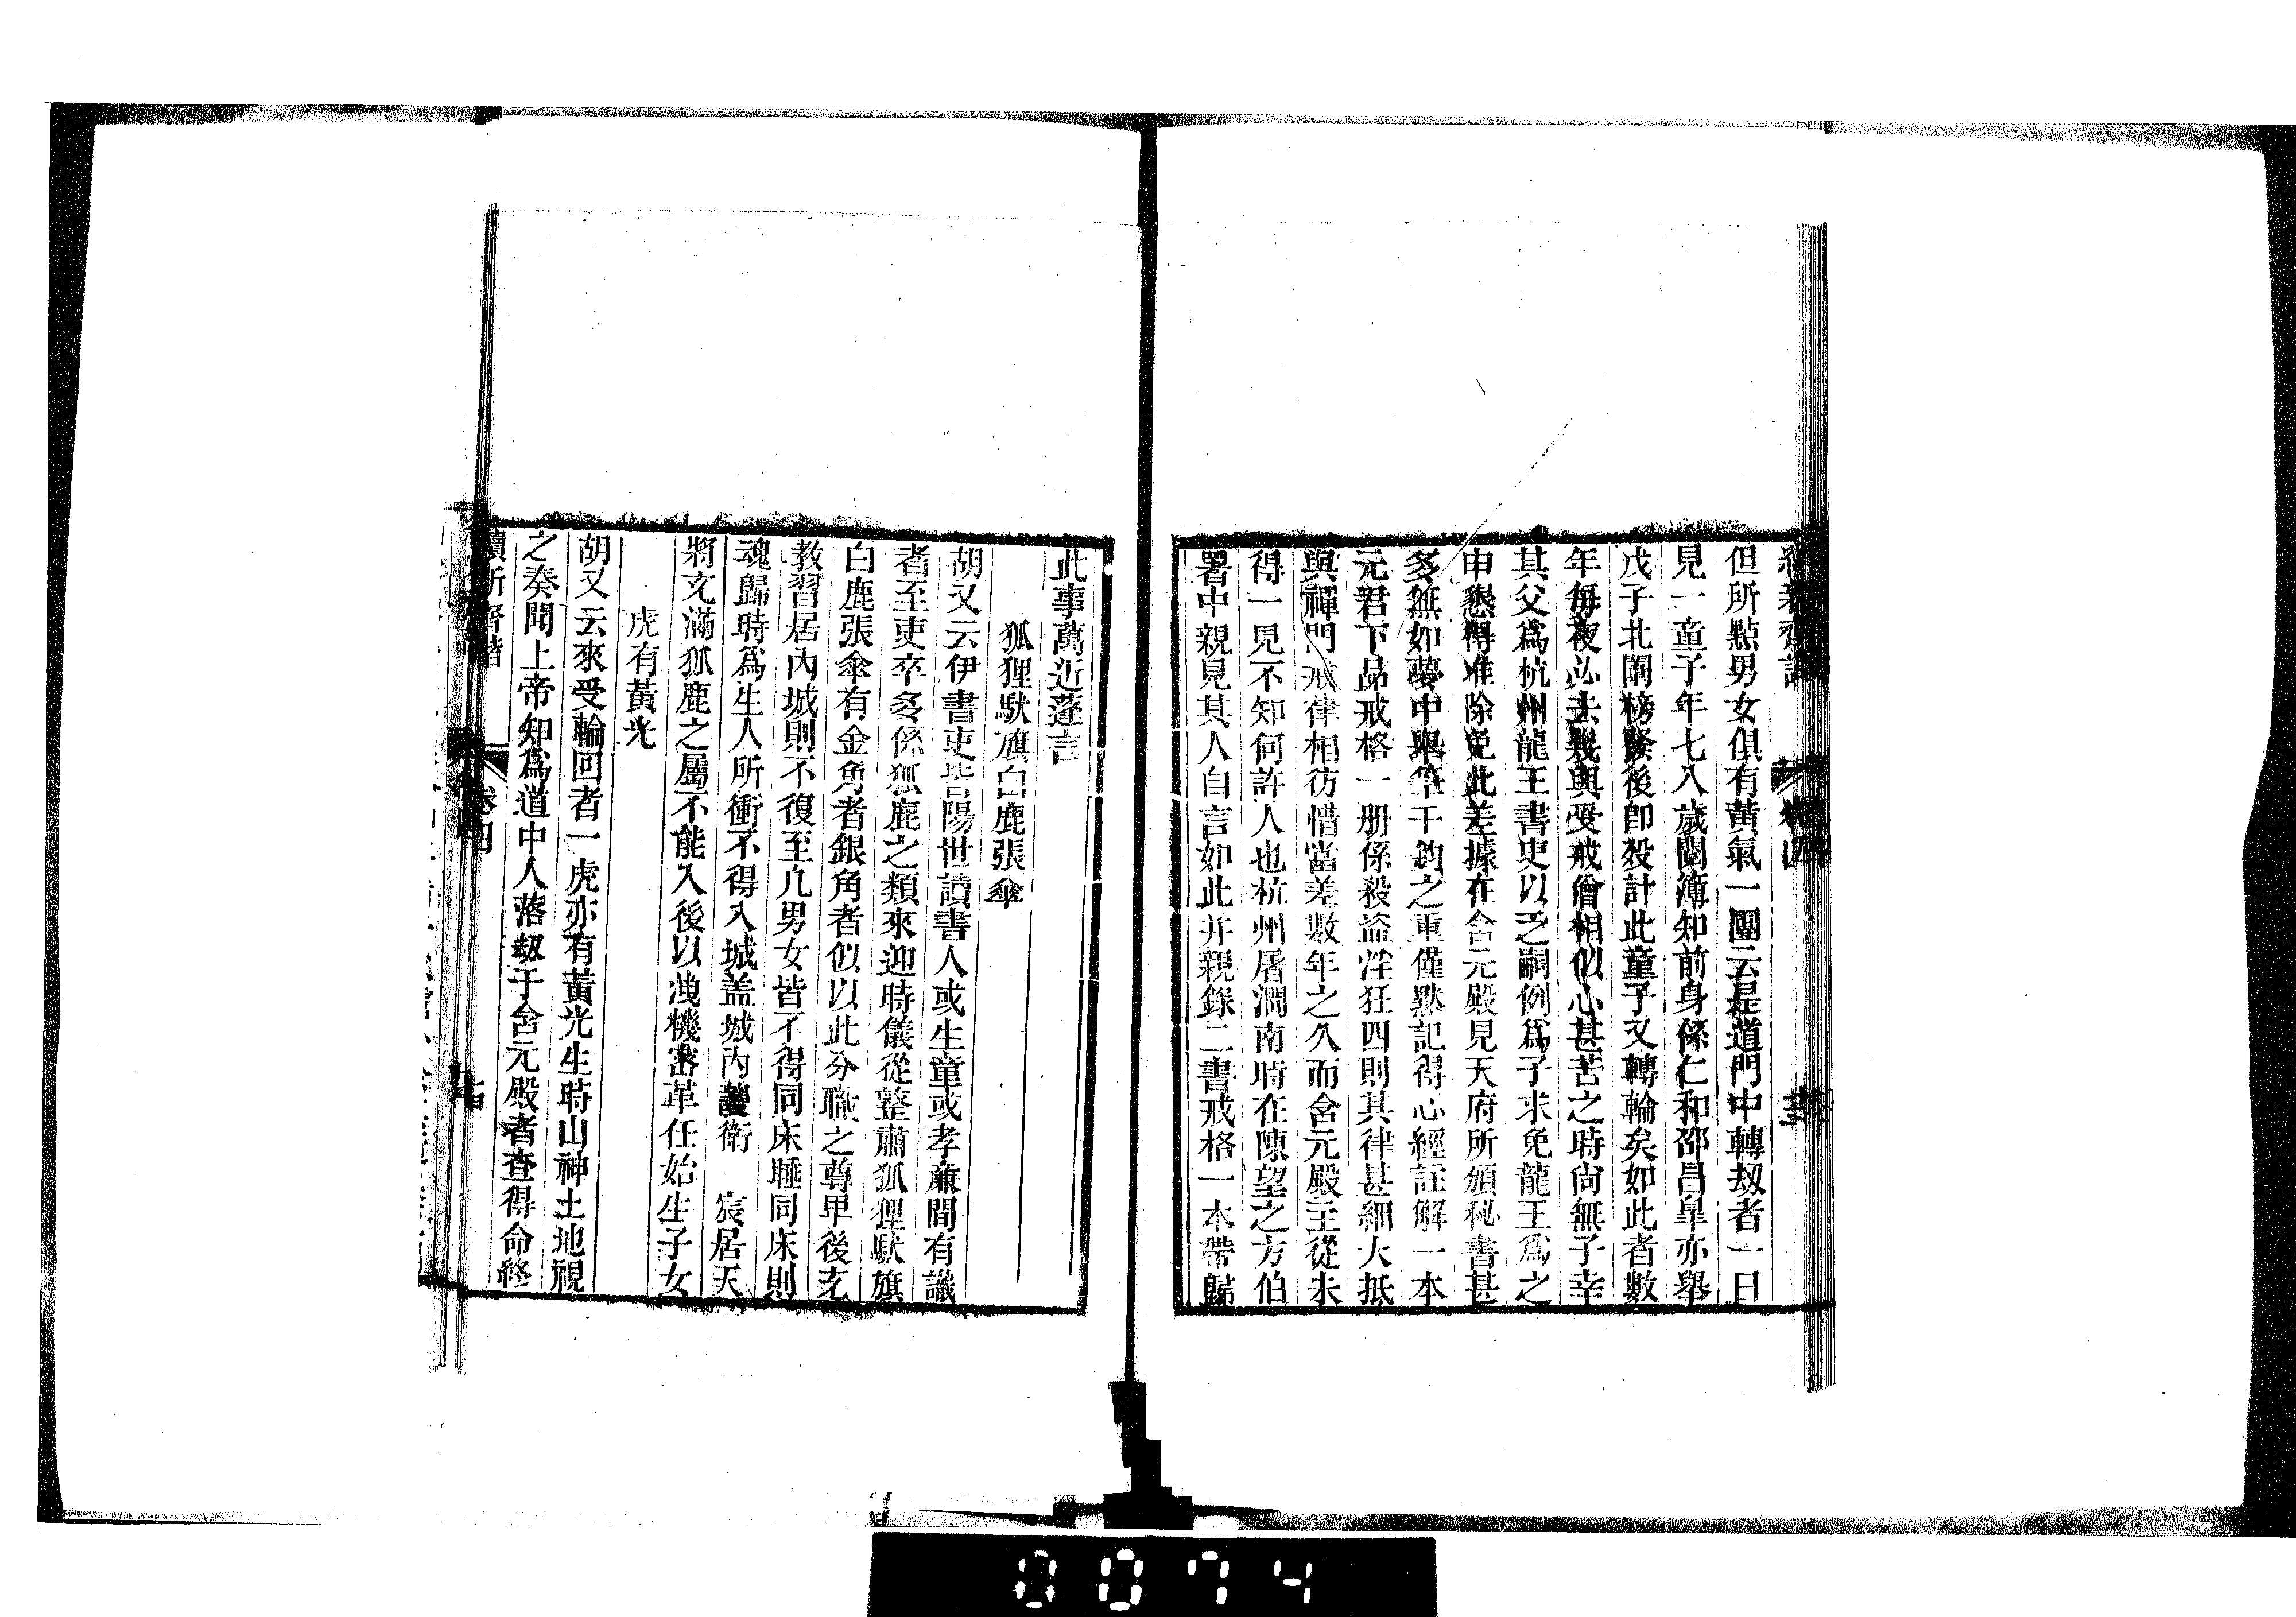 但所點男女俱有黃氣一團云是道門中轉刼者一日
見一童子年七八歲閱簿知前身係仁和邵昌臯亦舉
戊子北闈榜發後卽歿計此童子又轉輪矣如此者數
年每夜必去幾與受戒僧相似心甚苦之時尙無子幸
其父爲杭州龍王書吏以乏嗣例爲子求免龍王爲之
申懇得准除免此差據在含元殿見天府所頒秘書甚
多無如夢中舉筆千鈞之重僅默記得心經註解一本
元君下品戒格一册係殺盜淫狂四則其律甚細大抵
與禪門戒律相彷惜當差數年之久而含元殿主從未
得一見不知何許人也杭州屠澗南時在陳望之方伯
署中親見其人自言如此并親錄二書戒格一本帶歸
此事萬近蓬言
狐狸馱旗白鹿張傘
胡又云伊書吏皆陽世讀書人或生童或孝廉間有識
者至吏卒多係狐鹿之類來迎時儀從整肅狐狸馱旗
白鹿張傘有金角者銀角者似以此分職之尊卑後玄
教習居內城則不復至凡男女皆不得同床睡同床則
魂歸時爲生人所衝不得入城盖城內護衛 宸居天
將充滿狐鹿之屬不能入後以洩機密革任始生子女
虎有黃光
胡又云來受輪回者一虎亦有黃光生時山神土地視
之奏聞上帝知爲道中人落刼于含元殿者查得命終
續新齊諧
卷四